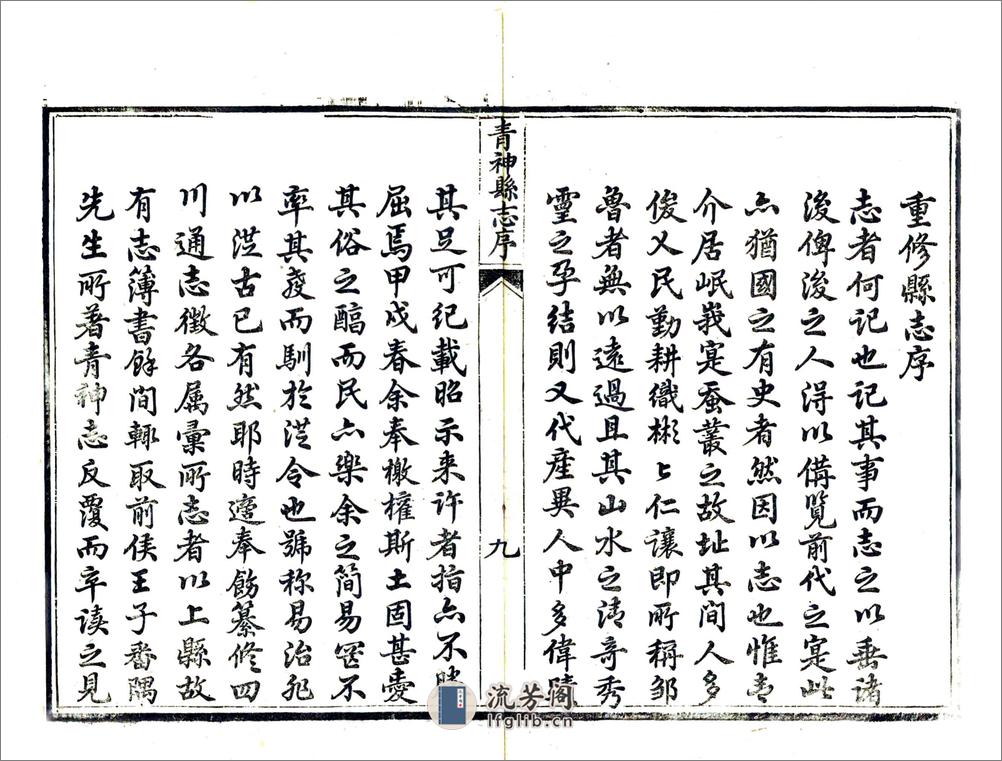 重修縣志序
志者何記也記其事而志之以垂諸
後俾後之人得以備覽前代之寔此
亦猶國之有史者然因以志也惟青
介居岷峩寔蚕叢之故址其間人多
俊乂民勤耕織彬彬仁讓即所稱鄒
魯者無以遠過且其山水之清奇秀
靈之孕結則又代產異人中多偉蹟
青神縣志序
九
其足可紀載昭示来許者指亦不勝
屈焉甲戍春余奉檄權斯土固甚愛
其俗之醕而民亦樂余之简易罔不
率其教而馴於從令也號称易治非
以從古已有然耶時適奉飭纂修四
川通志徵各属彙所志者以上縣故
有志簿書餘间輙取前侯王子番隅
先生所著青神志反覆而卒读之見
流芳阁
lfglib.cn